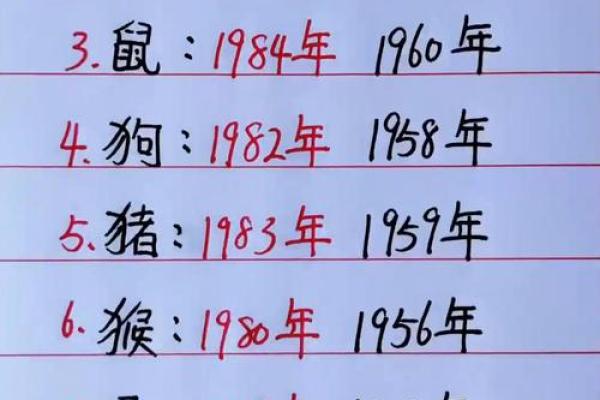 3.鼠：1984年 1960年
4.狗：1982年 1958年
5.猪：1983年 1959年
6.猴：1980年 1956年